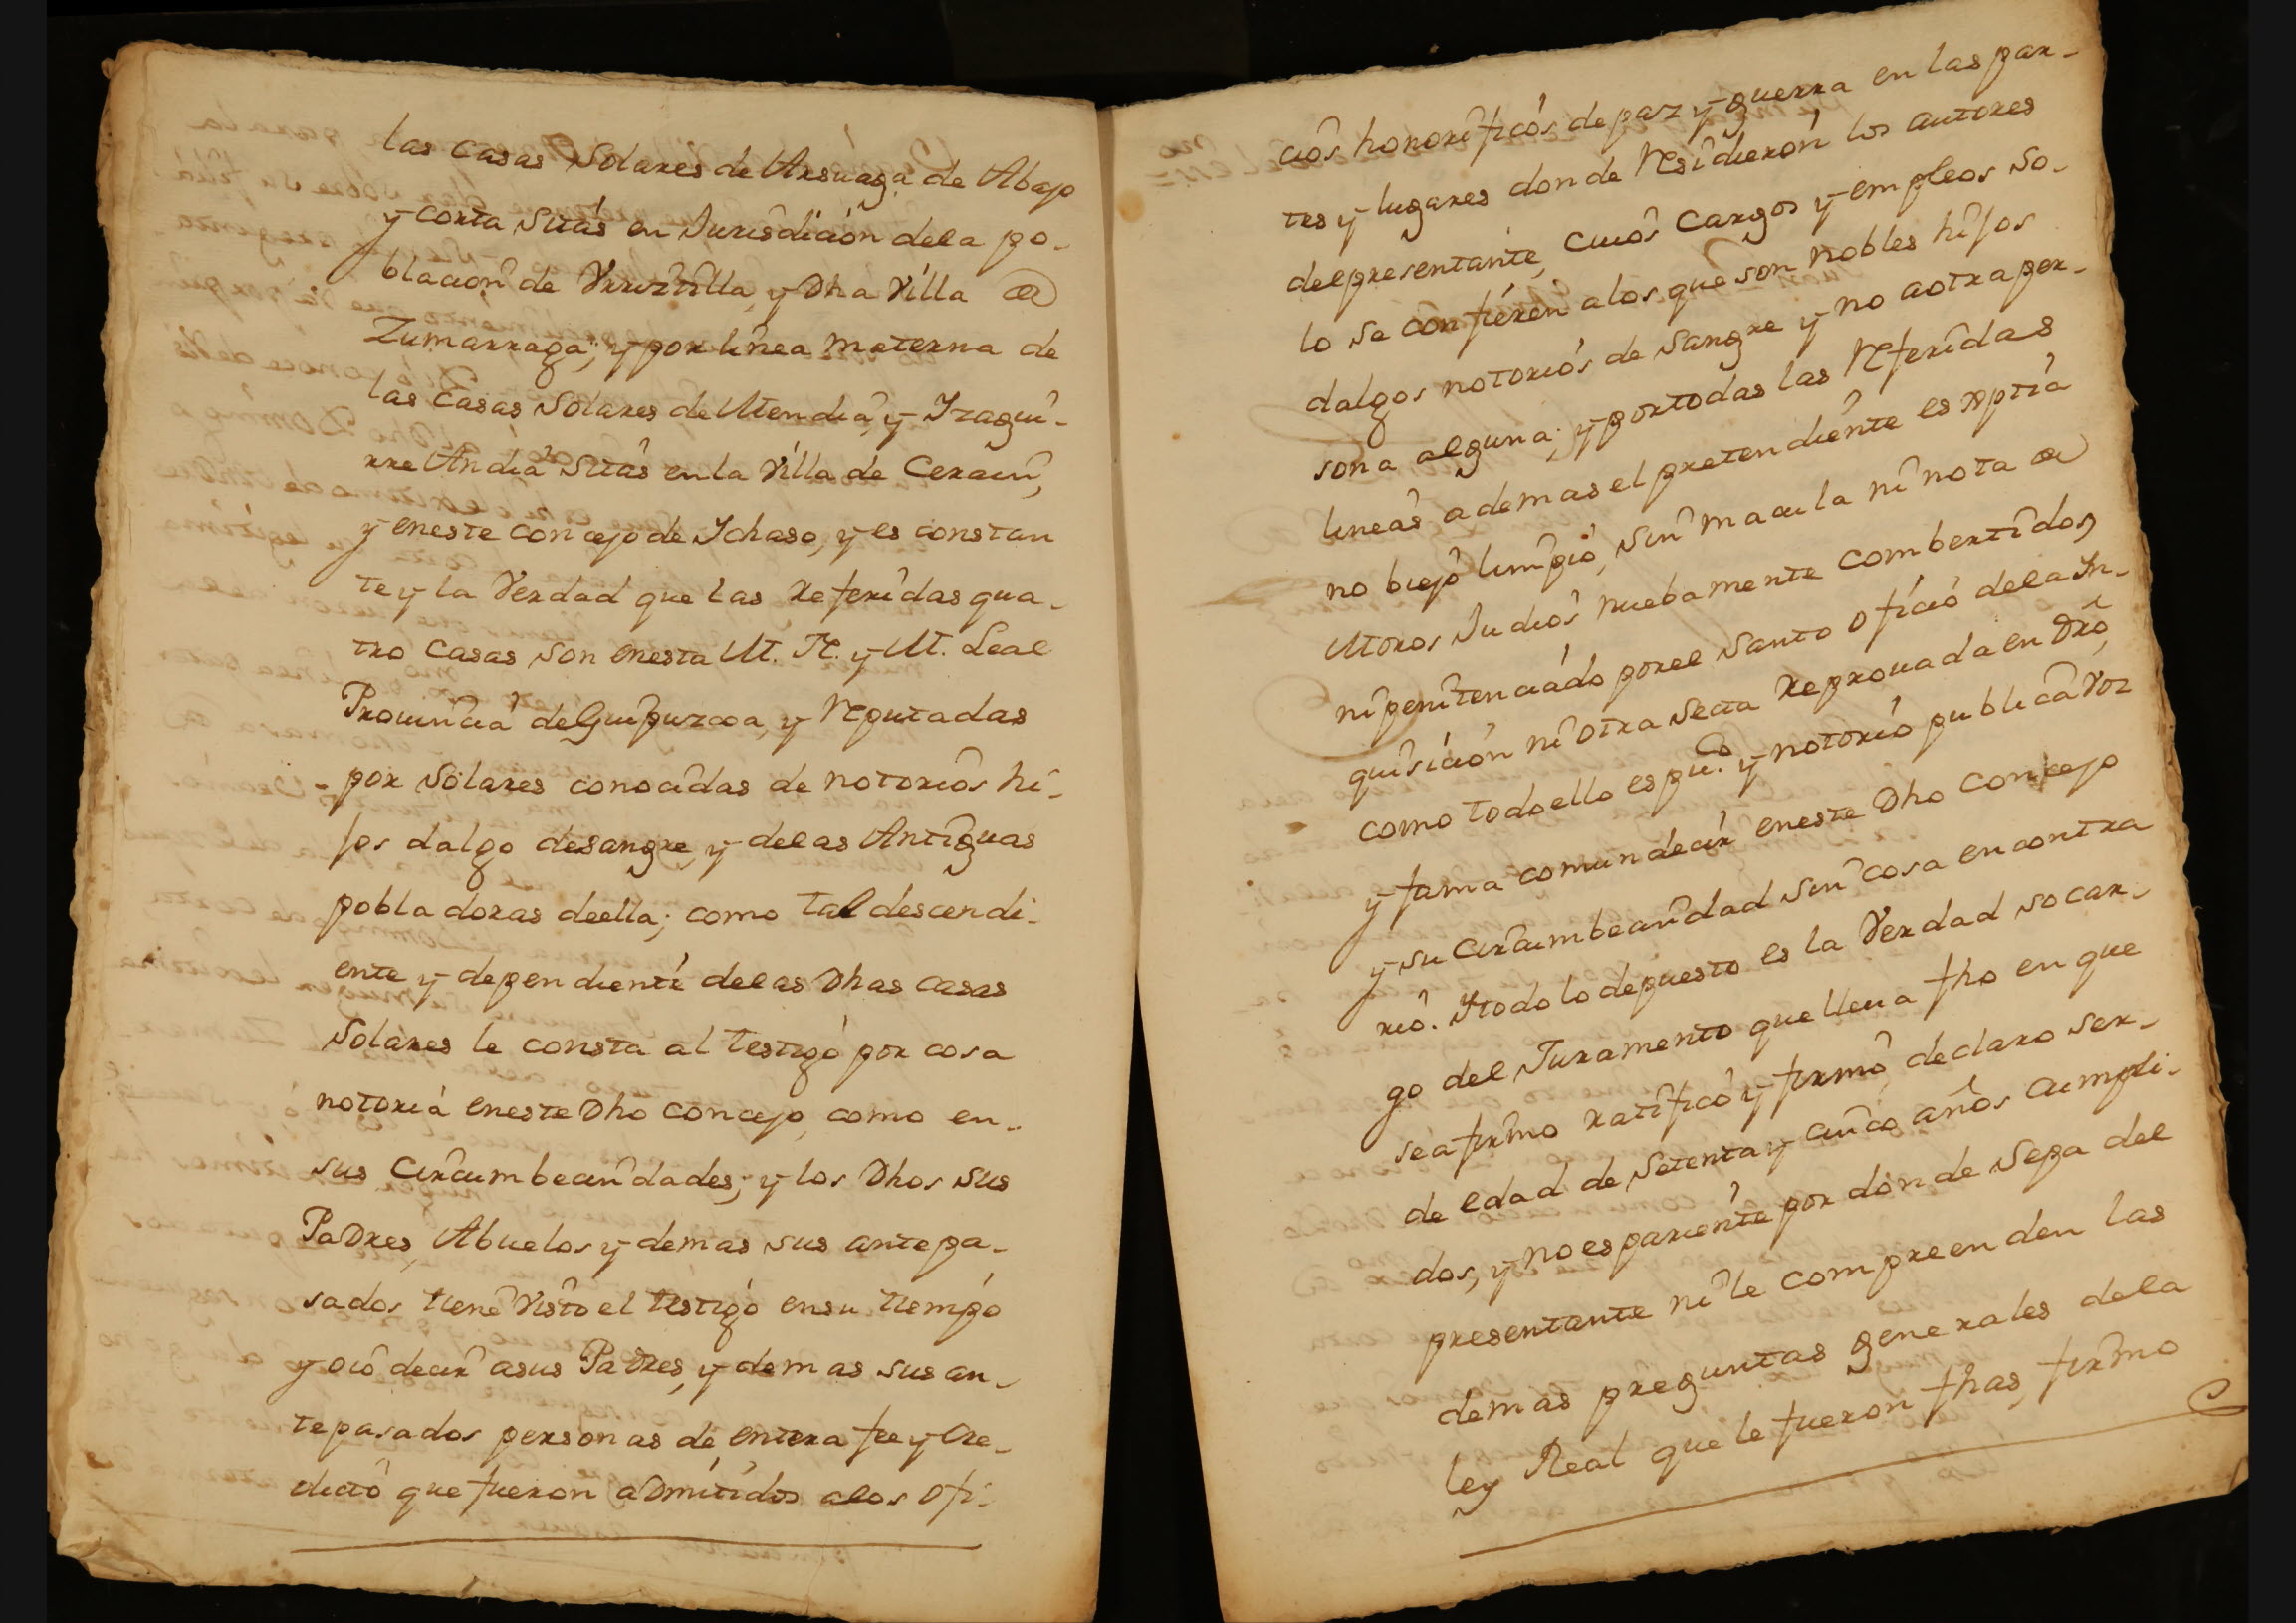 las casas Solares de Arsuaga de Abajo
y corta sitas en Jurisdicion dela po-
blacion de Vrreztilla, y Dha Villa de
Zumarraga; y por linea materna de
las Casas Solares de Mendia, y Yzagui-
rre Andia sitas en la Villa de Cerain,
y eneste concejo de Ichaso, y es constan
te y la Verdad que las Referidas qua-
tro Casas son enesta M. N. y M. Leal
Prouincia de Guipuzcoa, y Reputadas
por Solares conocidas de notorios hi-
jos dalgo desangre, y delas Antiguas
pobladoras deella; como tal descendi-
ente y dependiente delas Dhas casas
Solares le consta al testigo por cosa
notoria eneste Dho concejo, como en-
sus circumbecindades; y los Dhos sus
Padres, Abuelos y demas sus antepa-
sados, tiene Visto el testigo ensu tiempo
y oio decir asus Padres, y demas sus an-
tepasados personas de entera fee y Cre-
dicto que fueron admitidos alos Ofi-
cios honorificos de paz y guerra en las par-
tes y lugares donde Residieron los autores
delpresentante, cuios Cargos y empleos so-
lo se confieren alos que son nobles hijos
dalgos notorios de sangre y no aotra per-
sona alguna; y portodas las Referidas
lineas ademas el pretendiente es xptia
no biejo limpio, sin macula ni nota de
Moros Judios nuebamente combertidos
ni penitenciado porel Santo Oficio dela In-
quisicion ni otra secta Reprouada en Dro,
como todo ello es pu.co y notorio publica Voz
y fama comun decir eneste Dho concejo
y su circumbecindad sin cosa encontra
rio. Y todo lo depuesto es la Verdad so car-
go del Juramento que lleua fho en que
seafirmo ratifico y firmo, declaro ser-
de edad de setenta y cinco años cumpli-
dos, y noes pariente por donde sepa del
presentante ni le compreenden las
demas preguntas generales dela
ley Real que le fueron fhas, firmo